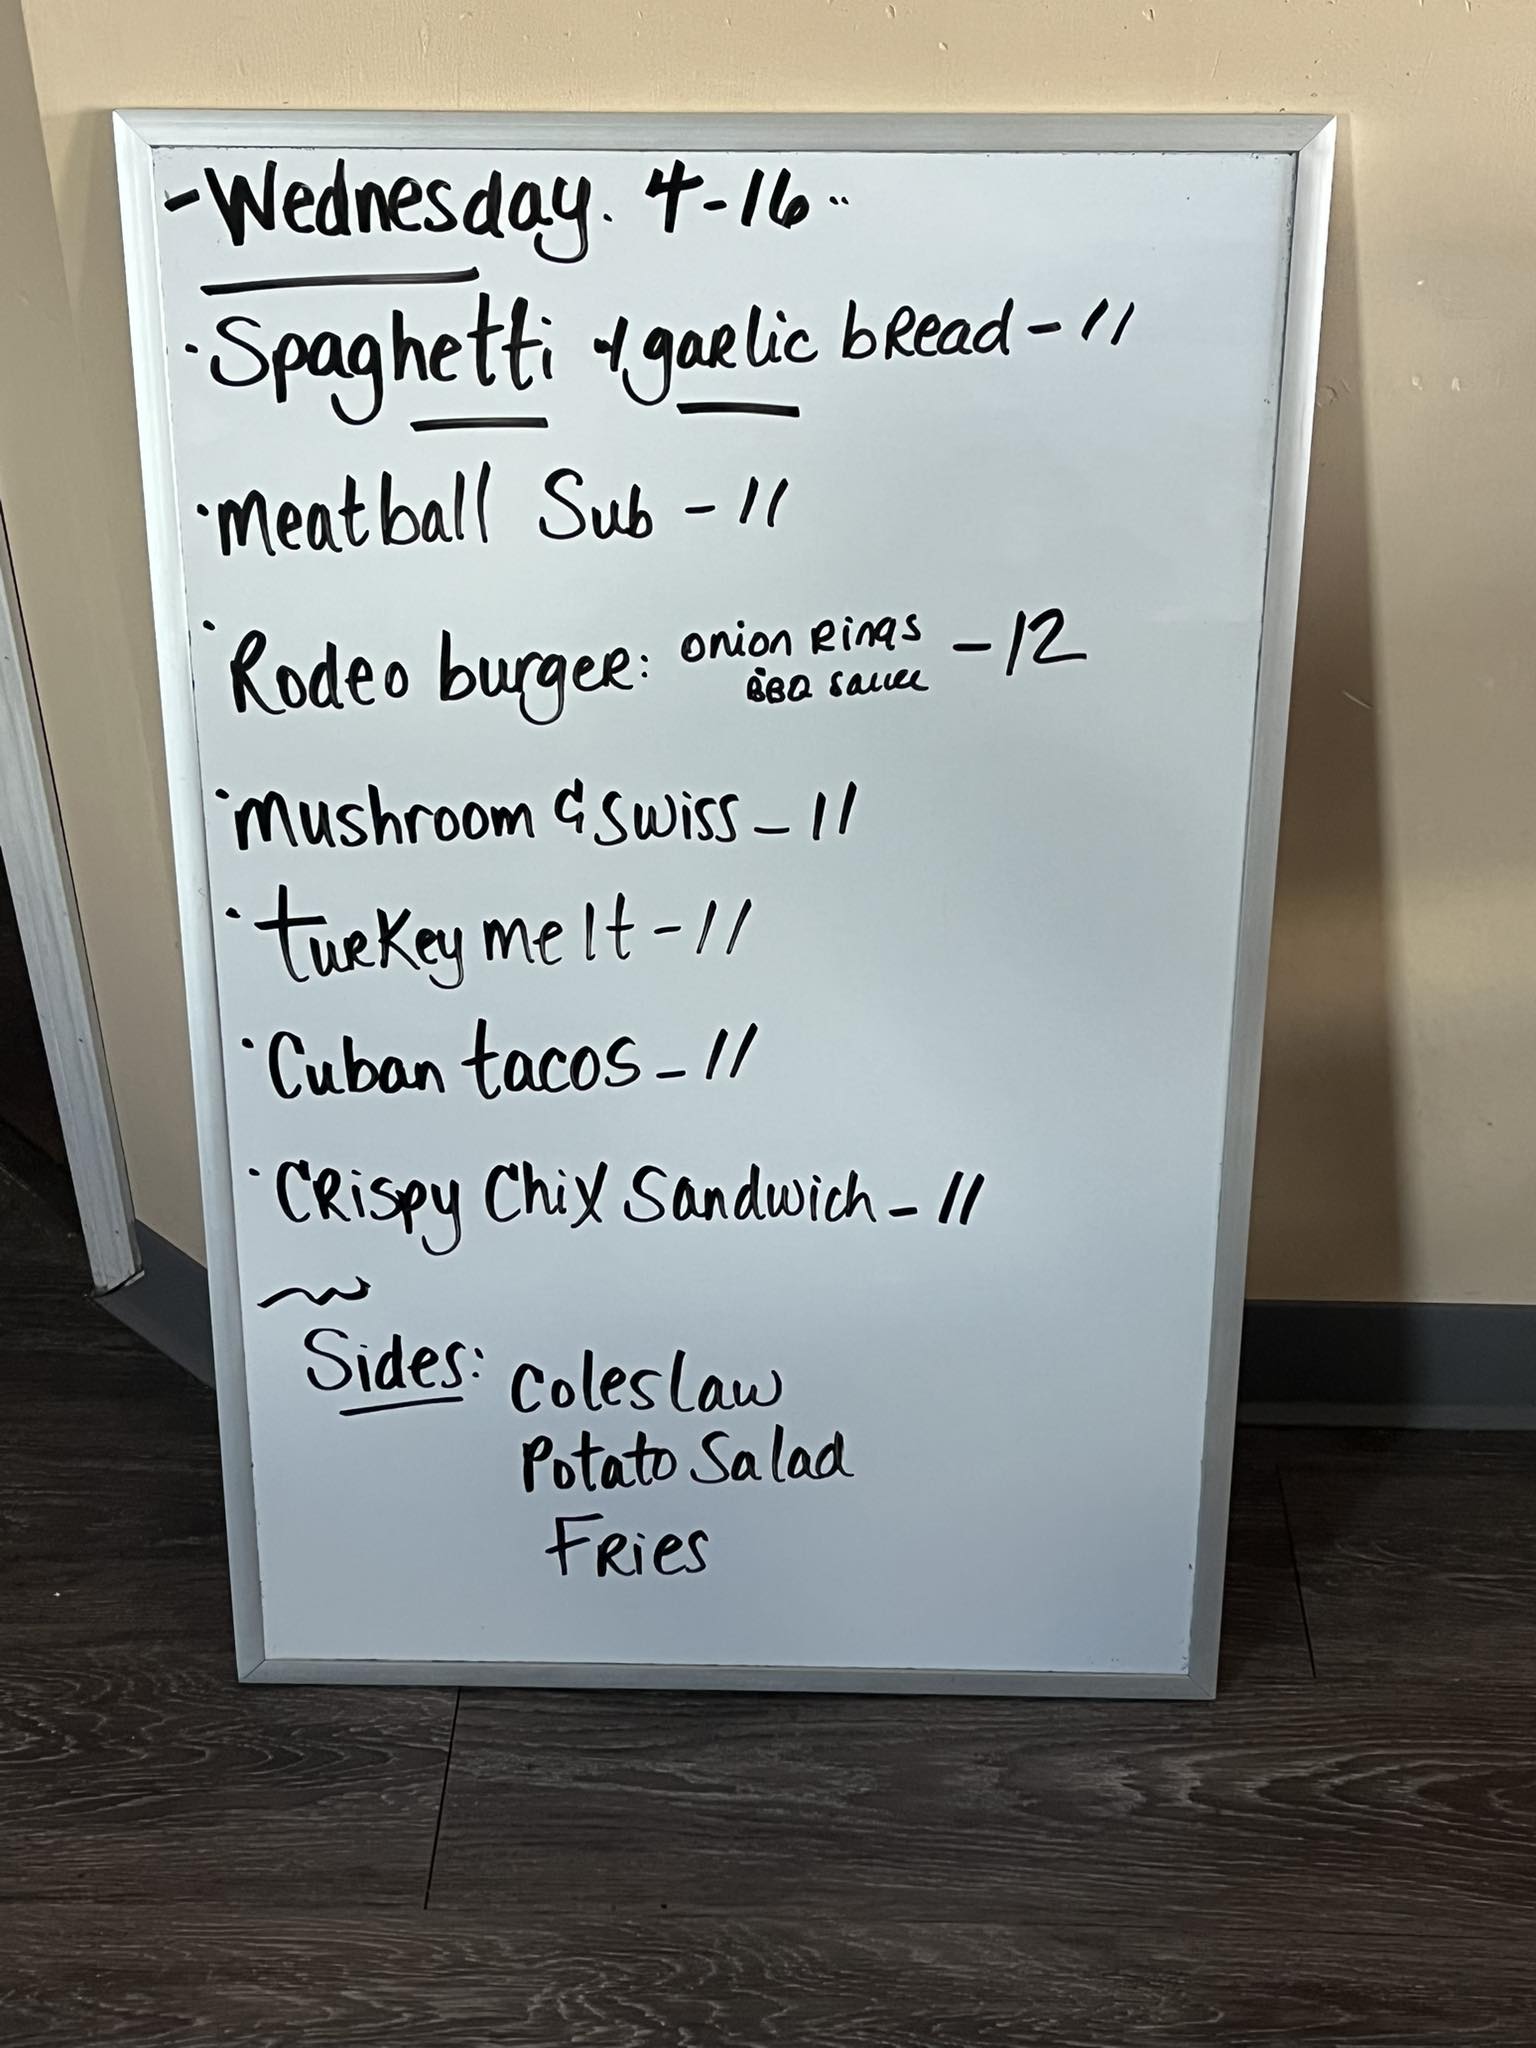 - Wednesday. 4-16..
· Spaghetti & garlic bread - 11
· meatball Sub - 11
· Rodeo burger: onion Rings - 12
BBQ sauce
· mushroom & swiss - 11
· turkey melt - 11
· Cuban tacos - 11
· Crispy Chix Sandwich - 11
Sides: coleslaw
Potato Salad
Fries